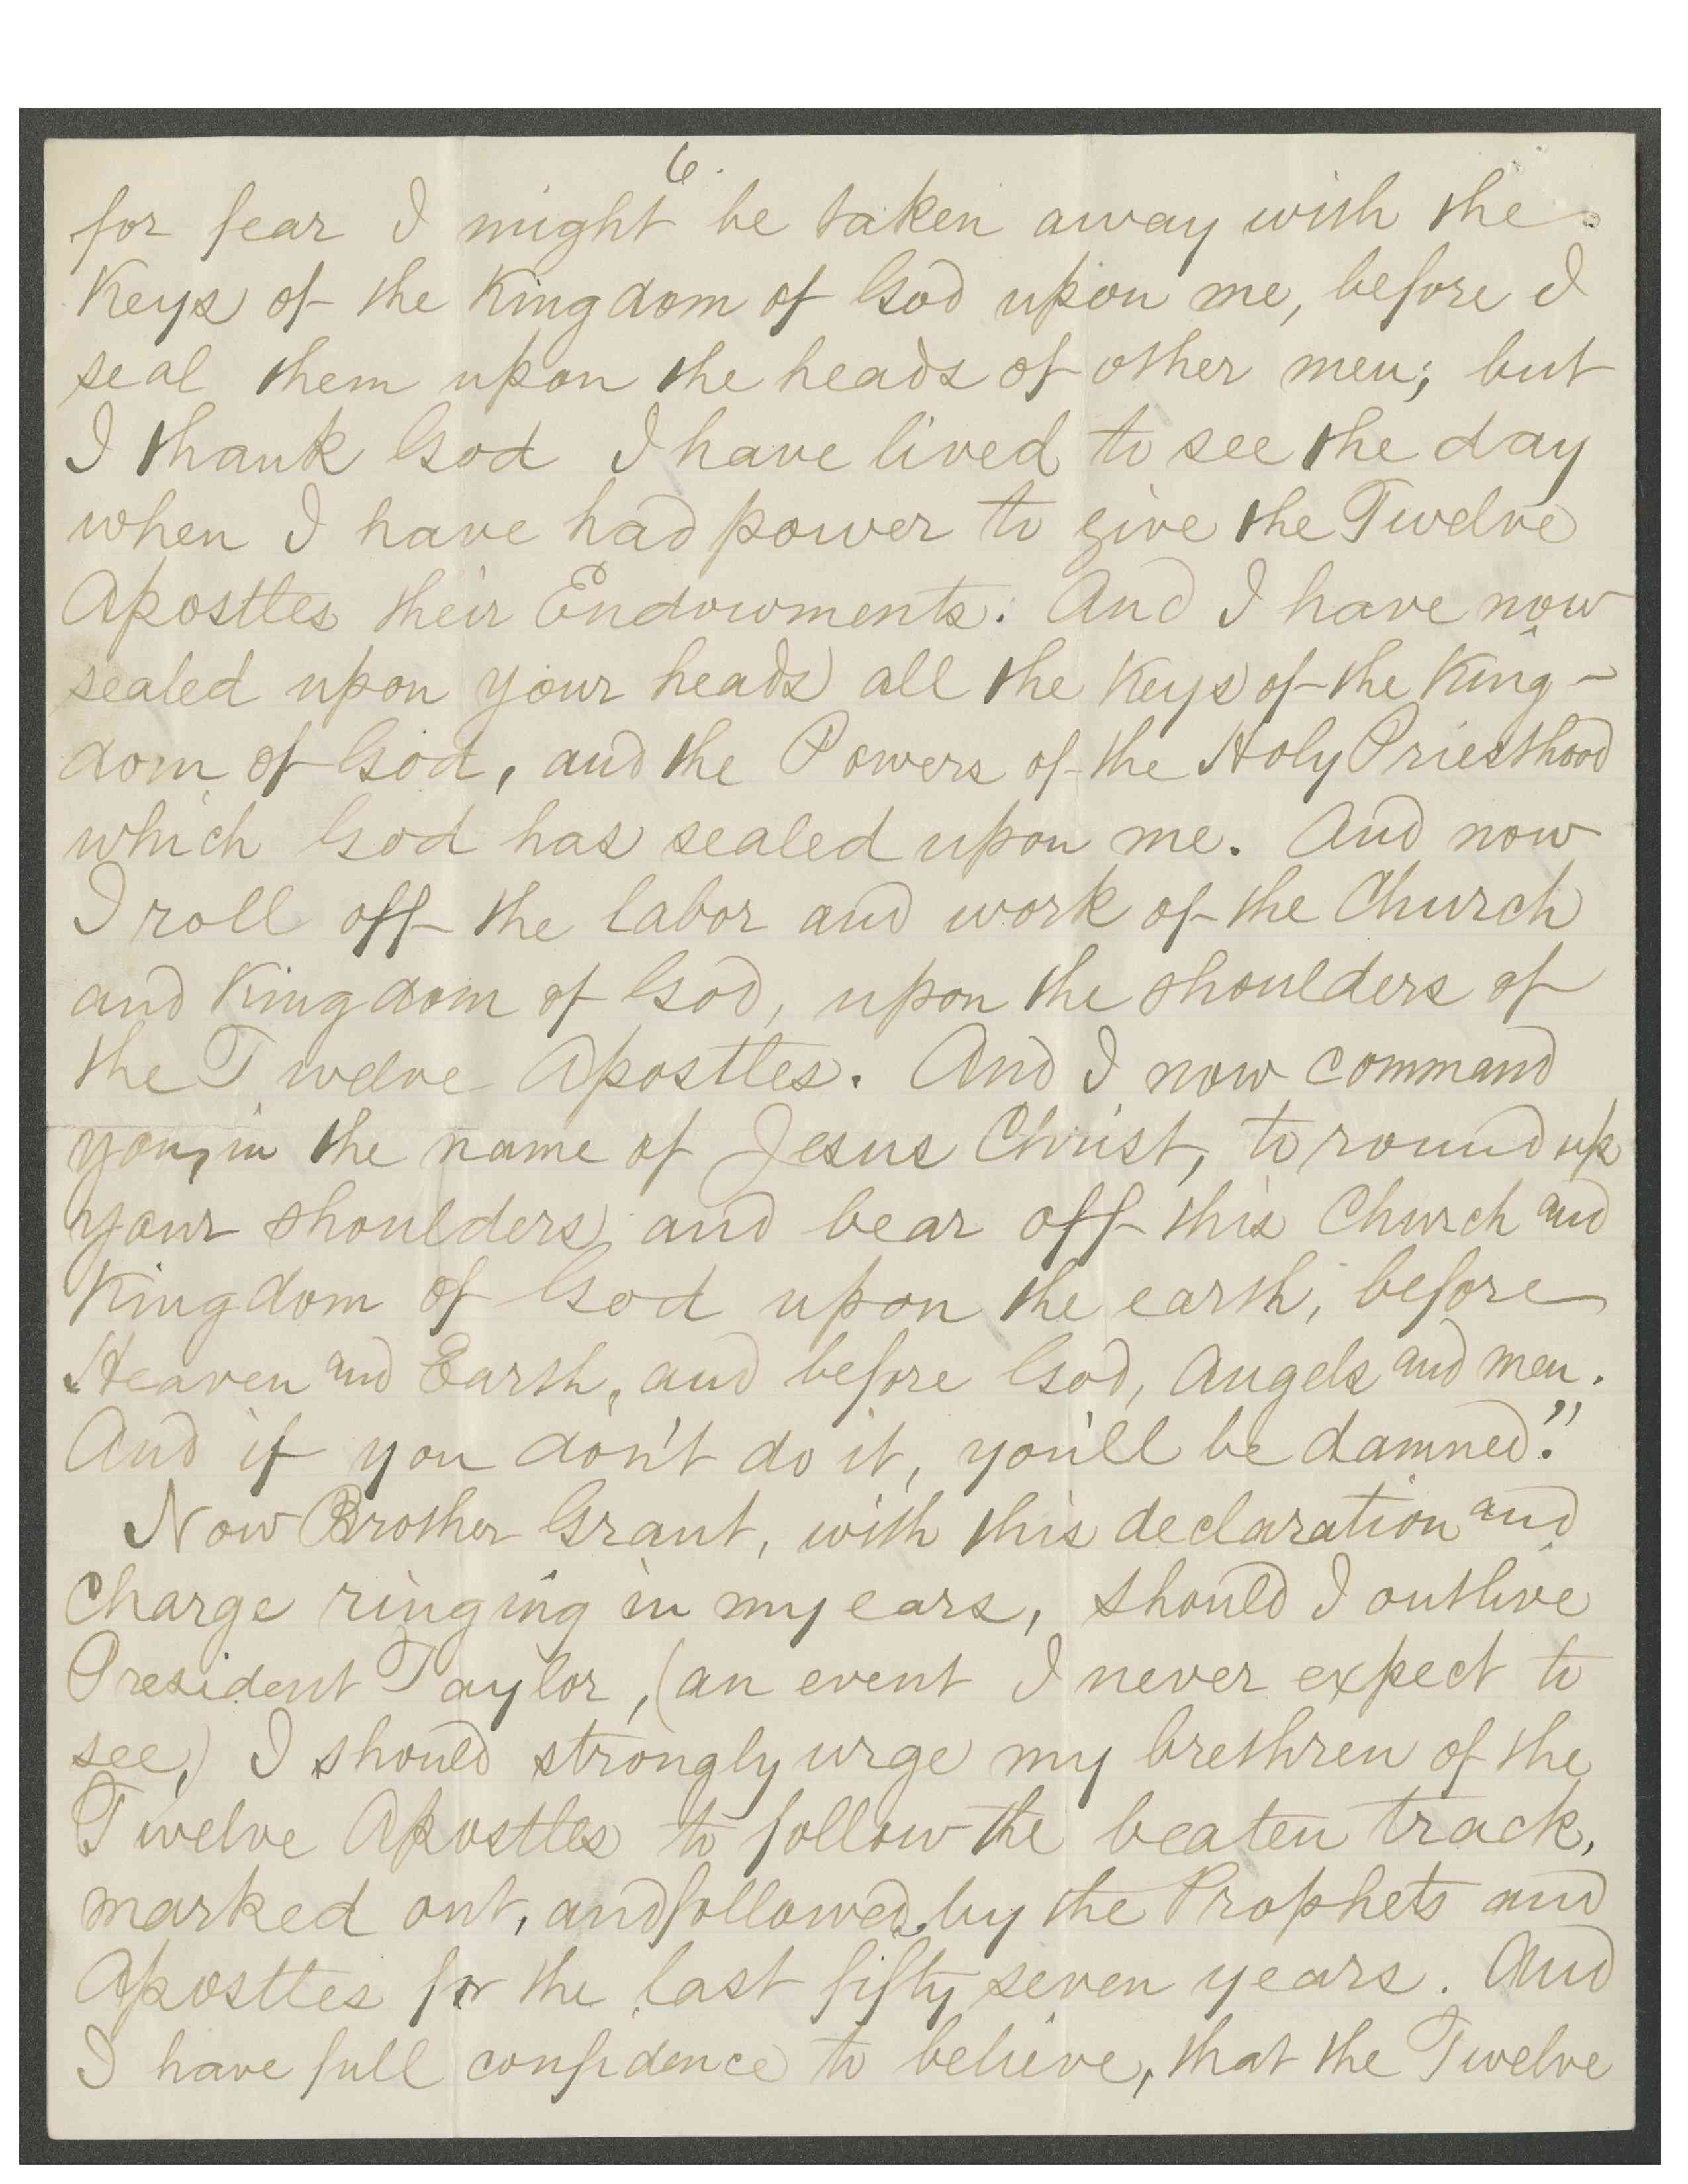 6.
for fear I might be taken away with the
Keys of the Kingdom of God upon me, before I
seal them upon the heads of other men; but
I thank God I have lived to see the day
when I have had power to give the Twelve
Apostles their Endowments. And I have now
sealed upon your heads all the Keys of the King-
dom of God, and the Powers of the Holy Priesthood
which God has sealed upon me. And now
I roll off the labor and work of the Church
and Kingdom of God, upon the shoulders of
the Twelve Apostles. And I now command
you, in the name of Jesus Christ, to round up
your shoulders, and bear off this Church and
Kingdom of God upon the earth, before
Heaven and Earth, and before God, Angels and men.
And if you don't do it, you'll be damned."
Now Brother Grant, with this declaration and
Charge ringing in my ears, should I outlive
President Taylor, (an event I never expect to
see,) I should strongly urge my brethren of the
Twelve Apostles to follow the beaten track,
marked out, and followed, by the Prophets and
Apostles for the last fifty seven years. And
I have full confidence to believe, that the Twelve